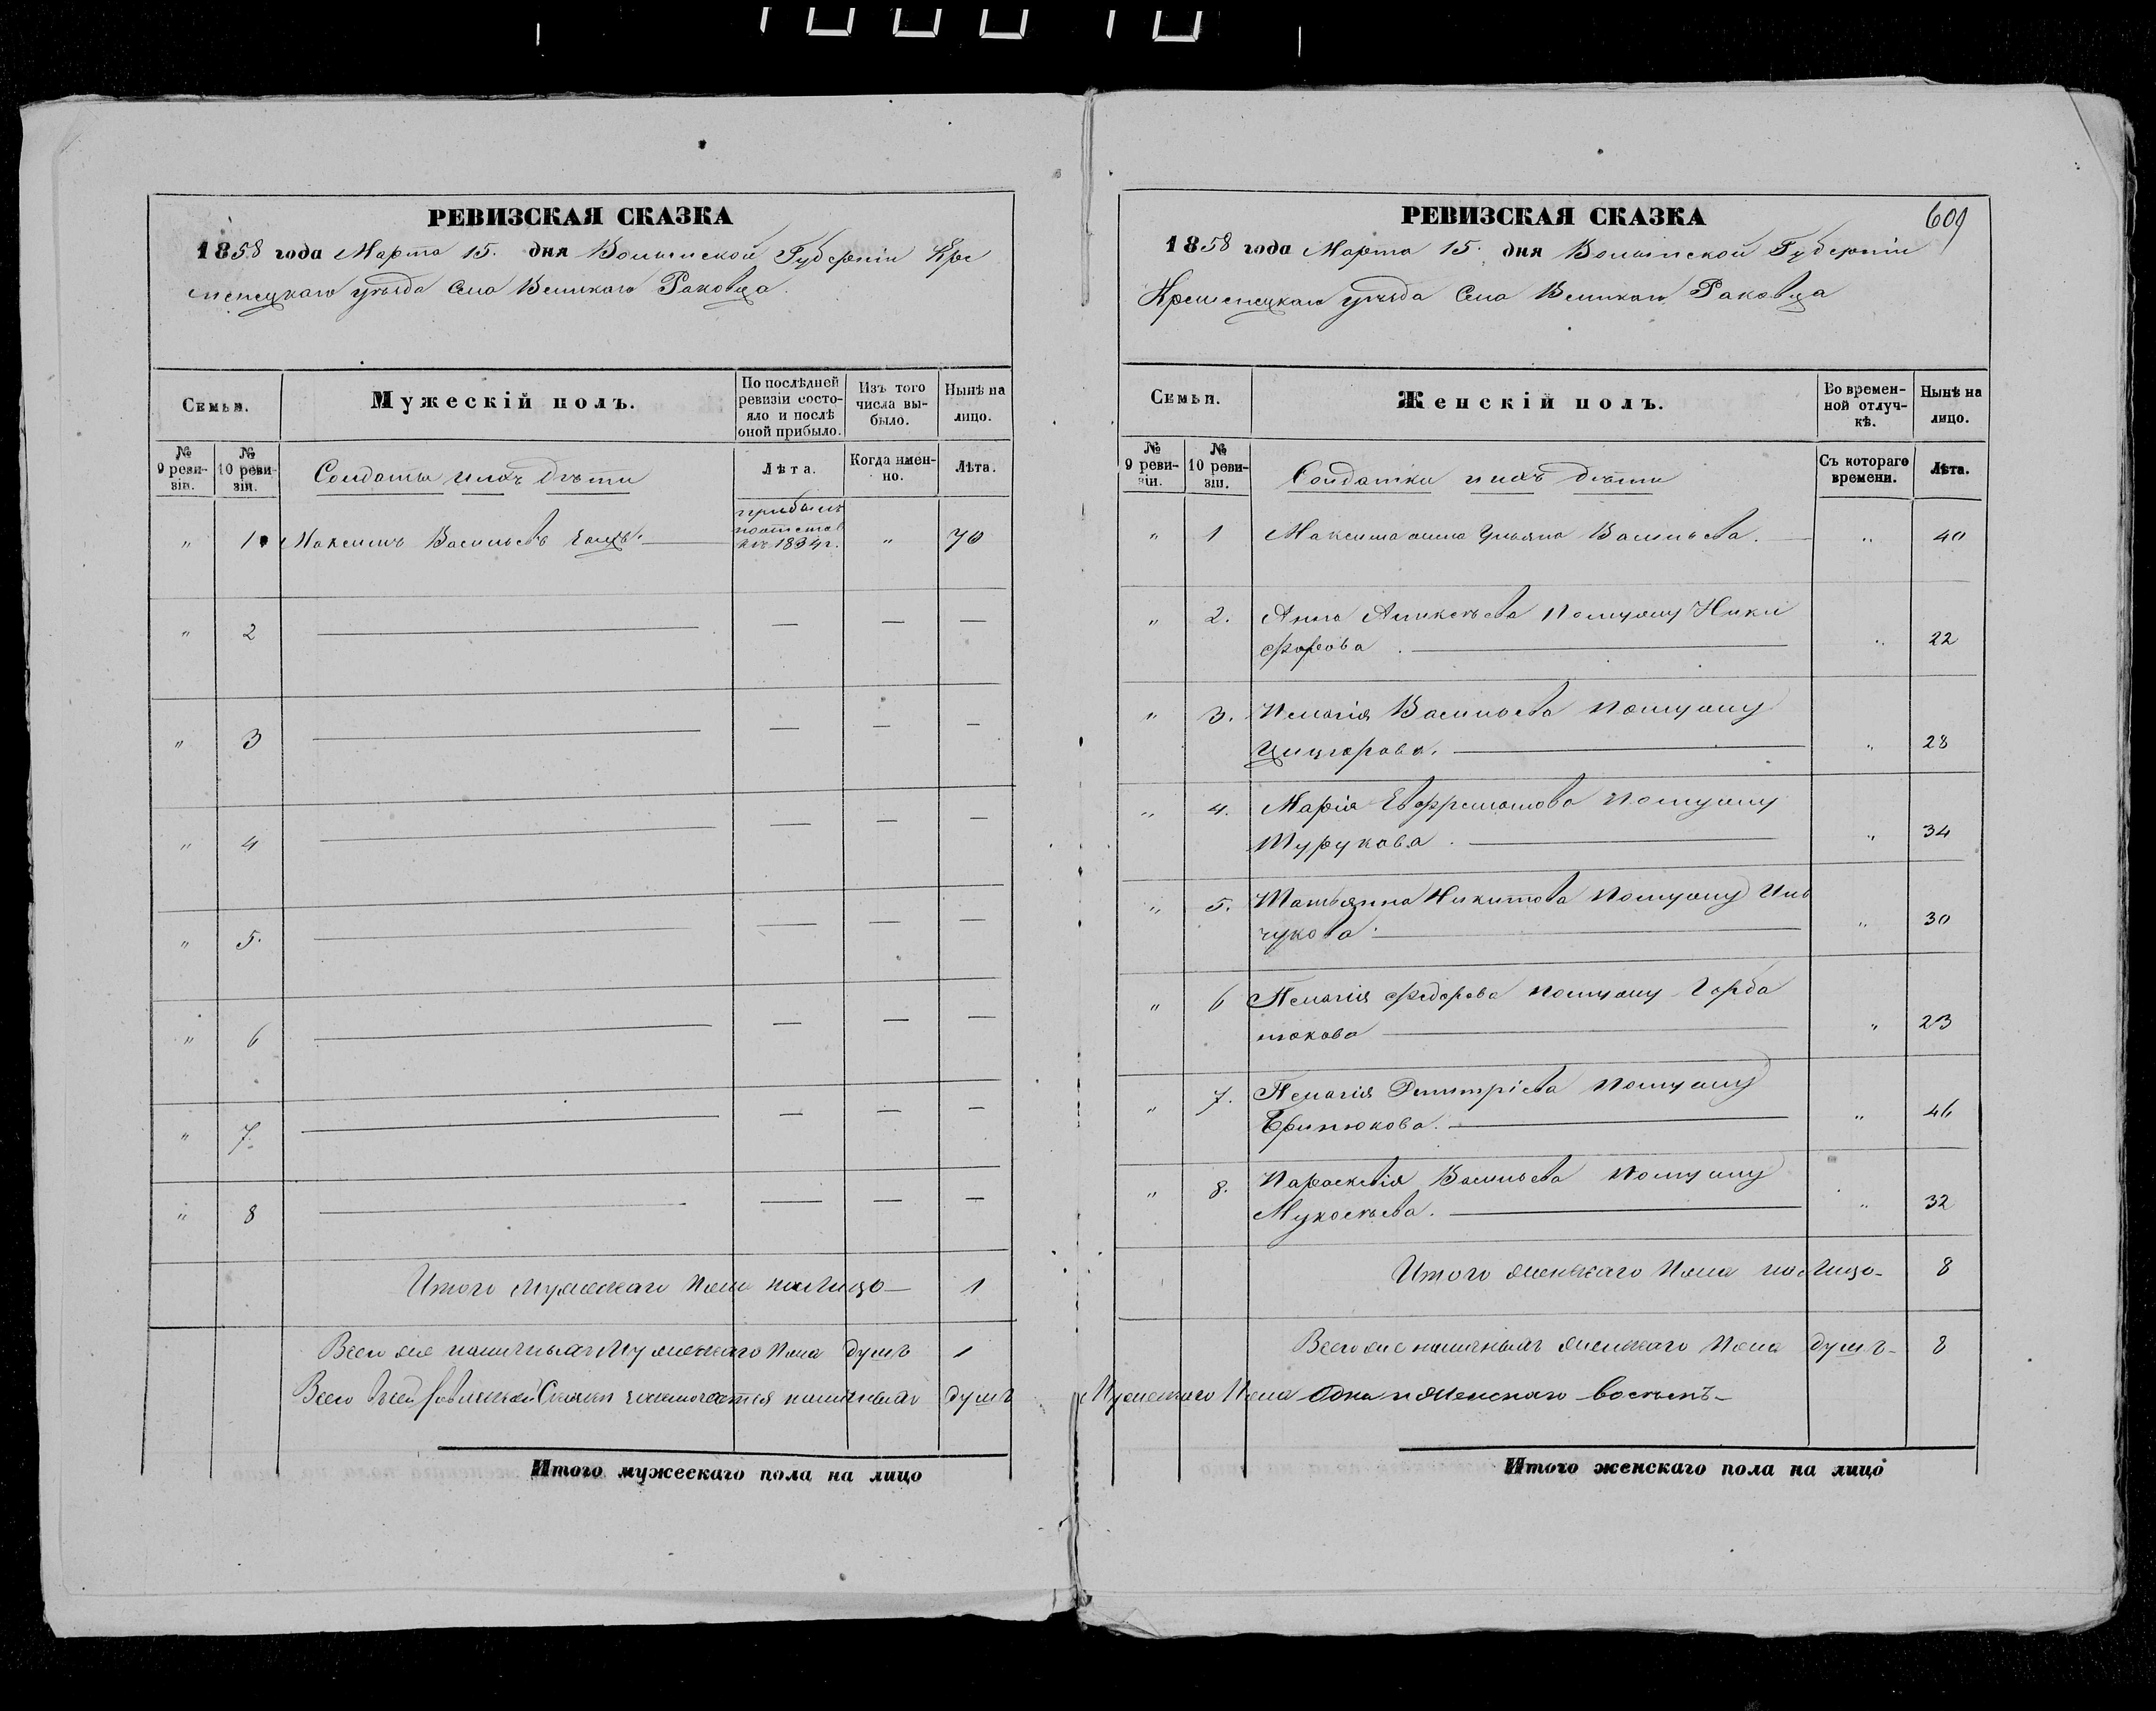 РЕВИЗСКАЯ СКАЗКА
1858 года Марта 15. дня Волынской Губерніи Кре
менецкаго уѣзда Села Великаго Раковца.
Семьи.
Мужескій полъ.
По послѣдней ревизіи состояло и послѣ оной прибыло.
Изъ того числа выбыло.
Нынѣ на лицо.
№ 9 ревизіи.
№ 10 ревизіи.
Солдаты и ихъ дѣти
Лѣта.
Когда именно.
Лѣта.
прибылъ
1834 г.
" 1 Максимъ Васильевъ " 70
" 2 — — — —
" 3 — — — —
" 4 — — — —
" 5. — — — —
" 6 — — — —
" 7. — — — —
" 8 — — — —
Итого мужескаго пола налицо — 1
Всего же наличныхъ мужескаго пола душъ 1
Всего въ сей ревизской Сказки заключается наличныхъ душъ
Итого мужескаго пола на лицо
РЕВИЗСКАЯ СКАЗКА
609
1858 года Марта 15. дня Волынской Губерніи
Кременецкаго уѣзда Села Великаго Раковца
Семьи.
Женскій полъ.
Во временной отлучкѣ.
Нынѣ на лицо.
№ 9 ревизіи.
№ 10 ревизіи.
Солдатки и ихъ дѣти
Съ котораго времени.
Лѣта.
" 1 Максима жена Ульяна Васильева. " 40
" 2. Анна Алексѣева по мужу Ники
форова. " 22
" 3. Пелагія Васильева по мужу
" 28
" 4. Марія по мужу
Турукова. " 34
" 5. Татьянна Никитова по мужу Иль
чукова. " 30
" 6 Пелагія Федорова по мужу Горба
тюкова " 23
" 7. Пелагія Димитріева по мужу
Бринюкова. " 46
" 8. Параскевія Васильева по мужу
" 32
Итого женскаго пола на лицо - 8
Всего же наличныхъ женскаго пола душъ - 8
Мужескаго пола одна и женскаго восемь -
Итого женскаго пола на лицо